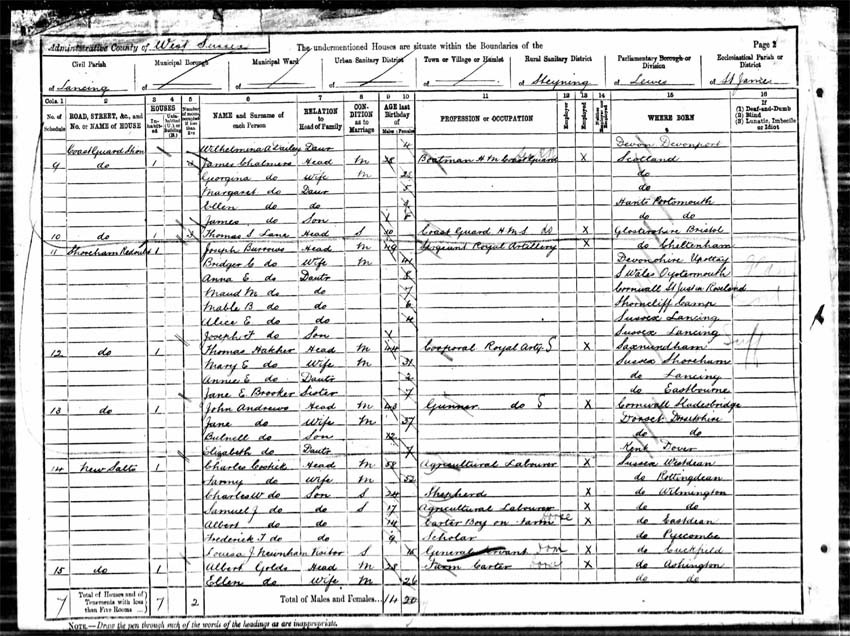 Administrative County of West Sussex The undermentioned Houses are situate within the Boundaries of the Page 2
Civil Parish Municipal Borough Municipal Ward Urban Sanitary District Town or Village or Hamlet Rural Sanitary District Parliamentary Borough or Division Ecclesiastical Parish or District
of Lancing of of of of of Steyning of Lewes of
Cols. 1 2 3 4 5 6 7 8 9 10 11 12 13 14 15 16
No. of Schedule ROAD, STREET, &c., and No. or NAME of HOUSE HOUSES Inhabited Number of rooms occupied if less than five NAME and Surname of each Person RELATION to Head of Family CONDITION as to Marriage AGE last Birthday of Males Females PROFESSION or OCCUPATION Employer Employed Neither WHERE BORN If (1) Deaf-and-Dumb (2) Blind (3) Lunatic, Imbecile or Idiot
Coast Guard Wilhelmina Daur 4 Devon Devonport
9 do 1 James Chalmers Head M 28 Boatman H M Coast Guard X Scotland
Georgina do Wife M do
Margaret do Daur 5 do
Ellen do do Hants Portsmouth
James do Son 1 do do
10 do 1 Thomas S Lane Head S Coast Guard H M S X Glostershire Bristol
11 Shoreham Redoubt 1 Joseph Burrows Head M 49 Sergeant Royal Artillery X do Cheltenham
Bridget C do Wife M 41 Devonshire
Anna E do Daur 8 S Wales Oystermouth
Maud M do do 7 Cornwall St Just in Roseland
Mable B do do 6 Shorncliff Camp
Alice E do do 4 Sussex Lancing
Joseph T do Son 1 Sussex Lancing
12 do 1 Thomas Hatcher Head M 44 Corporal Royal Arty X Saxmundham
Mary E do Wife M 31 Sussex Shoreham
Annie E do Daur 2 do Lancing
Jane E Brooker Sister 7 do Eastbourne
13 do 1 John Andrews Head M 43 Gunner do X Cornwall Sladesbridge
Jane do Wife M 37 Dorset Dorsetshire
Bulnell do Son 12 do do
Elizabeth do Daur 7 Kent Dover
14 New Salts 1 Charles Head M 58 Agricultural Labourer X Sussex Westdean
do Wife M 52 do Rottingdean
Charles W do Son S 24 Shepherd X do Wilmington
Samuel J do do S 17 Agricultural Labourer X do do
Albert do do 14 Carter Boy on Farm X do Eastdean
Frederick T do do 9 Scholar do Pyecombe
Louisa J Newnham Visitor S 15 General Servant X do Cuckfield
15 do 1 Albert Golds Head M 28 Farm Carter X do Ashington
Ellen do Wife M 26 do do
7 Total of Houses and of Tenements with less than Five Rooms 7 2 Total of Males and Females... 14 20
NOTE.—Draw the pen through such of the words of the headings as are inappropriate.